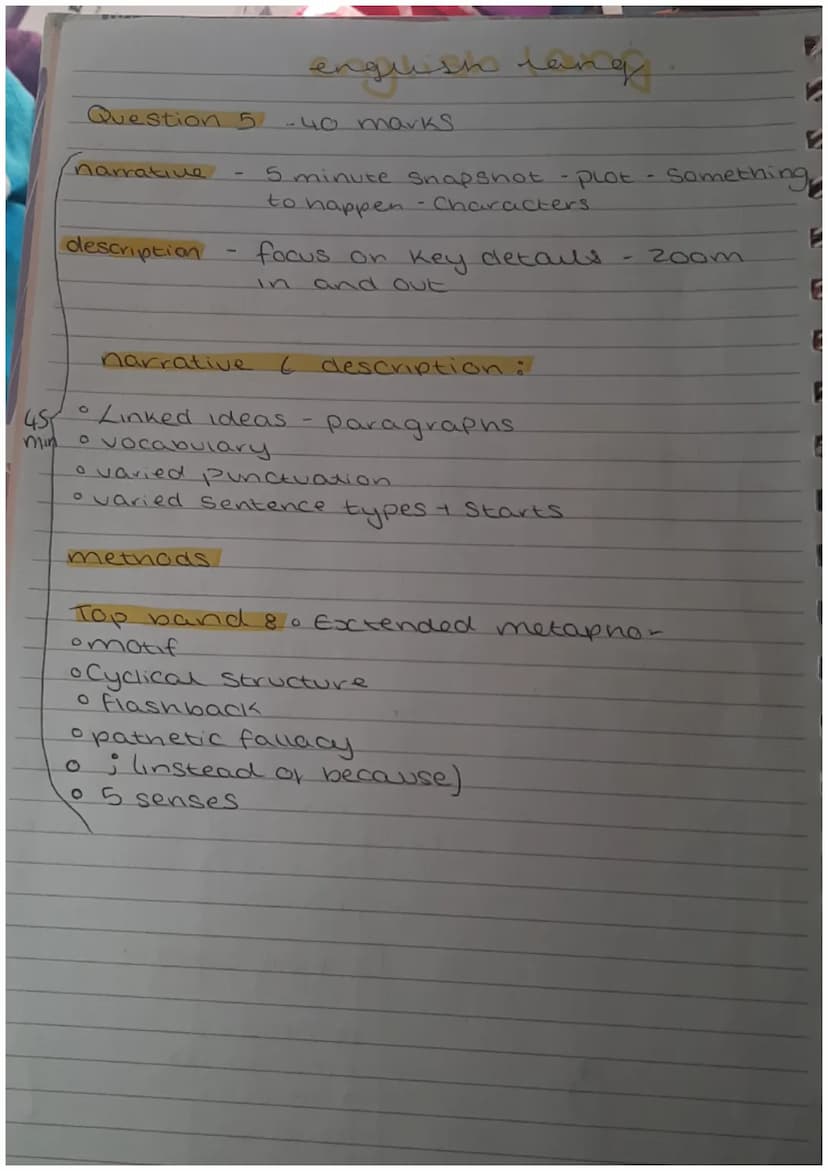 english lang.
Question 5 - 40 marks
narrative - 5 minute snapshot - plot - something
to happen - characters
description - focus on key details - zoom
in and out
narrative & description :
45
min
° Linked ideas - paragraphs
° vocabulary
° varied punctuation
° varied sentence types + starts
methods
Top band 8 ° Extended metaphor
° motif
° Cyclical structure
° flashback
° pathetic fallacy
° ; (instead of because)
° 5 senses